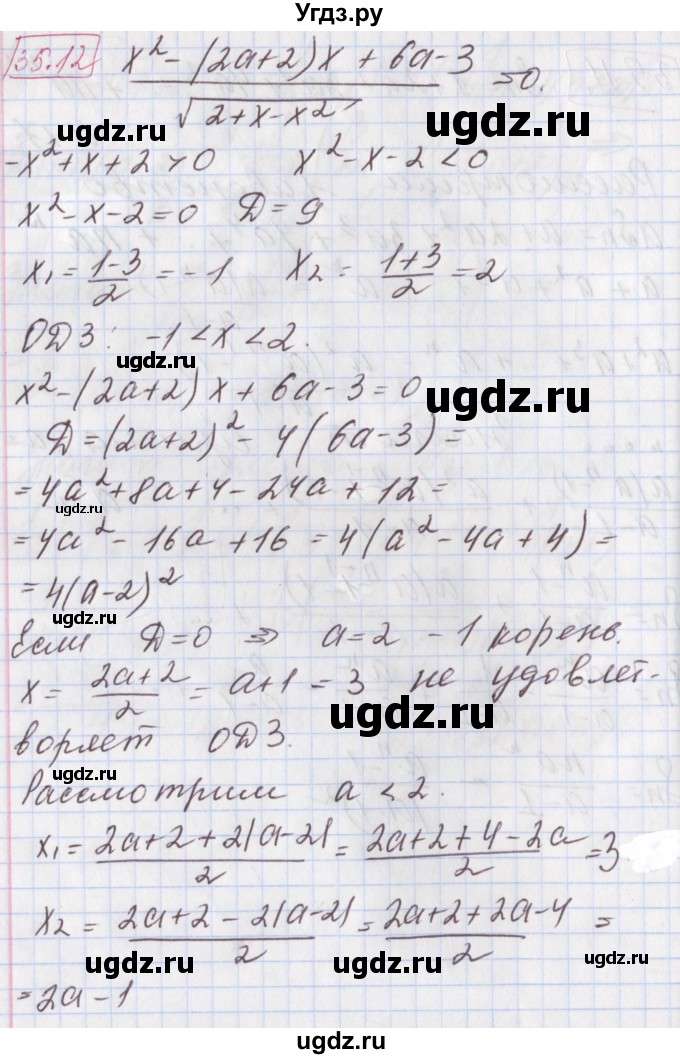 Угдз.ру
35.12 (x² - (2a+2)x + 6a-3) / √(2+x-x²) = 0.
-x²+x+2 > 0 x²-x-2 < 0
x²-x-2=0 D=9
x₁ = (1-3)/2 = -1 x₂ = (1+3)/2 = 2
ОДЗ: -1 < x < 2.
x² - (2a+2)x + 6a - 3 = 0
D = (2a+2)² - 4(6a-3) =
= 4a²+8a+4 - 24a + 12 =
= 4a² - 16a + 16 = 4(a² - 4a + 4) =
= 4(a-2)²
Если D=0 ⇒ a=2 - 1 корень.
x = (2a+2)/2 = a+1 = 3 не удовлет-
воряет ОДЗ.
Рассмотрим a < 2.
x₁ = (2a+2+2|a-2|)/2 = (2a+2+4-2a)/2 = 3
x₂ = (2a+2-2|a-2|)/2 = (2a+2+2a-4)/2 =
= 2a-1
ugdz.ru
ugdz.ru
ugdz.ru
ugdz.ru
ugdz.ru
ugdz.ru
ugdz.ru
ugdz.ru
ugdz.ru
ugdz.ru
ugdz.ru
ugdz.ru
ugdz.ru
ugdz.ru